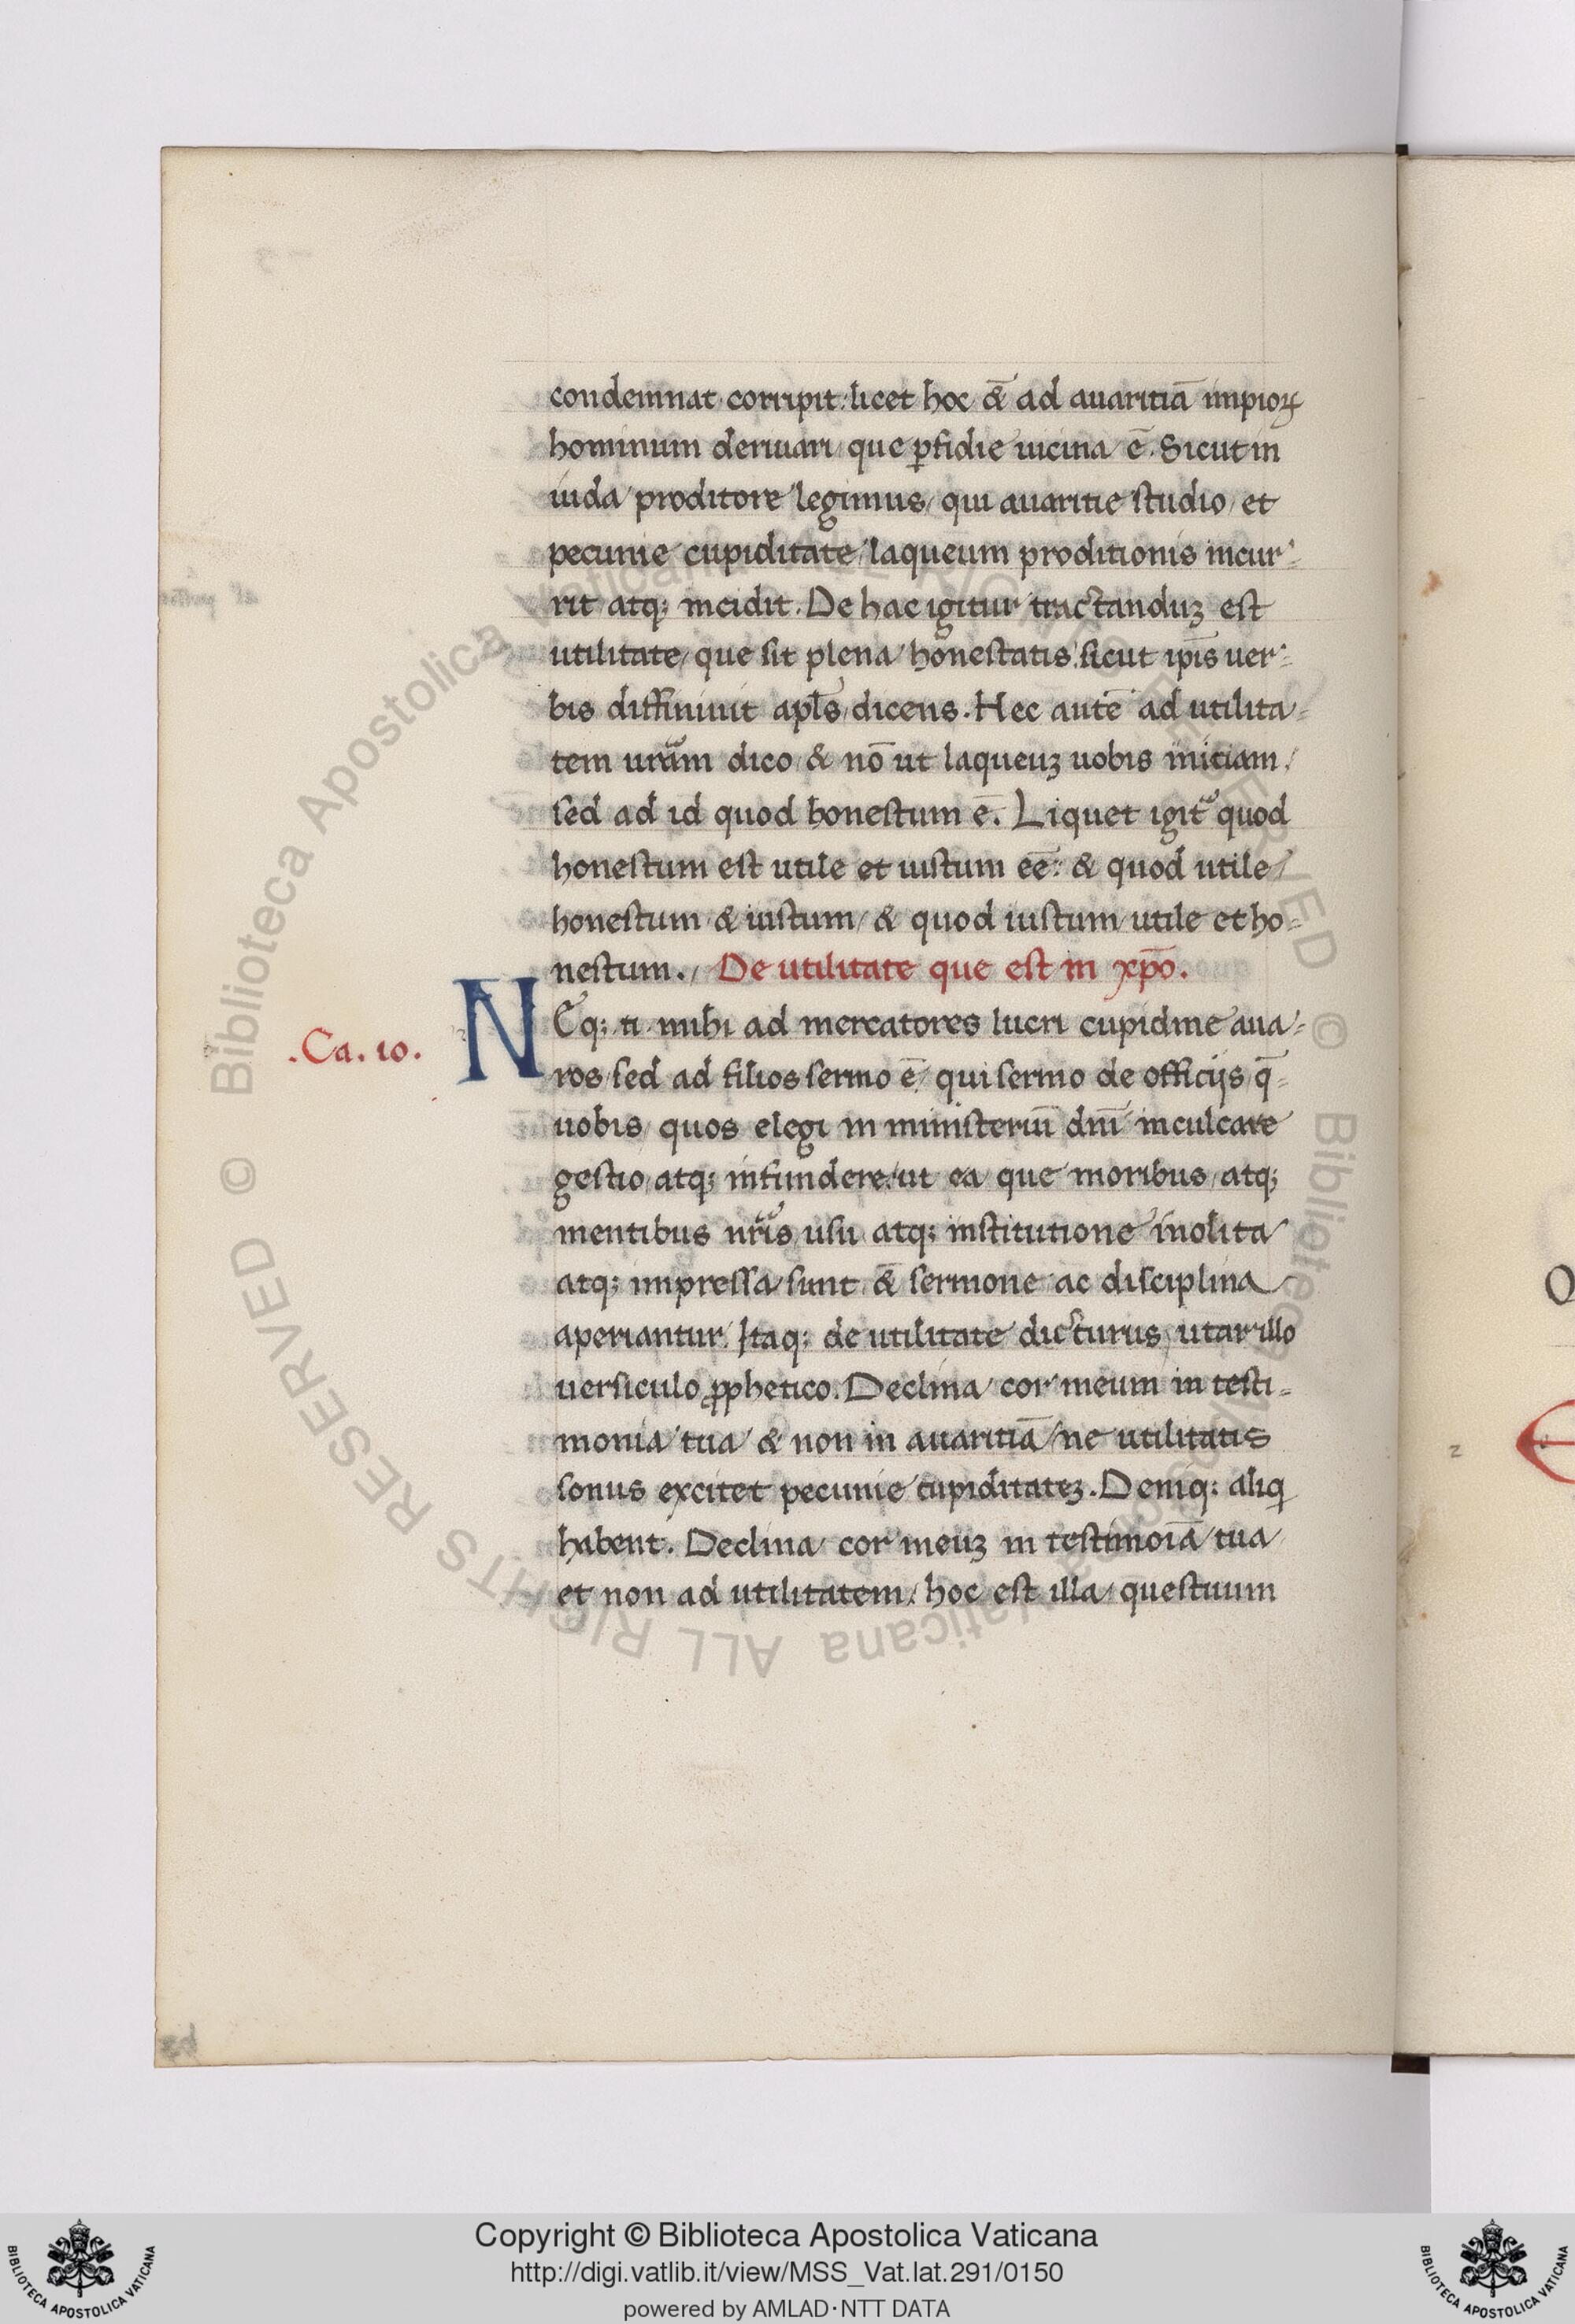 condemnat corripit: licet hoc &̄ ad auaritiā impioꝝ
hominum deriuari que ꝑfidie uicina ē. Sicut in
iuda proditore legimus, qui auaritie studio, et
pecunie cupiditate laqueum proditionis incur-
rit atq; incidit. De hac igitur tractanduꝫ est
utilitate, que sit plena honestatis: sicut ip̄is uer-
bis diffiniuit apl̄s, dicens. Hec autē ad utilita-
tem ur̄am dico, & nō ut laqueuꝫ uobis iniiciam,
sed ad id quod honestum ē. Liquet igit̄ quod
honestum est utile et iustum eē: & quod utile
honestum & iustum, & quod iustum utile et ho-
nestum. De utilitate que est in xp̄o.
.Ca. 10.
NEq; n̄ mihi ad mercatores lucri cupidine aua-
ros, sed ad filios sermo ē, qui sermo de officijs q̄
uobis, quos elegi in ministeriū dn̄i inculcare
gestio, atq; infundere: ut ea que moribus, atq;
mentibus nr̄is usu atq; institutione inolita
atq; impressa sunt, &̄ sermone ac disciplina
aperiantur. Itaq; de utilitate dicturus, utar illo
uersiculo ꝓphetico. Declina cor meum in testi-
monia tua & non in auaritiā, ne utilitatis
sonus excitet pecunie cupiditateꝫ. Deniq: aliq
habent. Declina cor meuꝫ in testimoīa tua
et non ad utilitatem, hoc est illa questuum
Copyright © Biblioteca Apostolica Vaticana
http://digi.vatlib.it/view/MSS_Vat.lat.291/0150
powered by AMLAD·NTT DATA
BIBLIOTECA APOSTOLICA VATICANA
BIBLIOTECA APOSTOLICA VATICANA
© Biblioteca Apostolica Vaticana ALL RIGHTS RESERVED
© Biblioteca Apostolica Vaticana ALL RIGHTS RESERVED